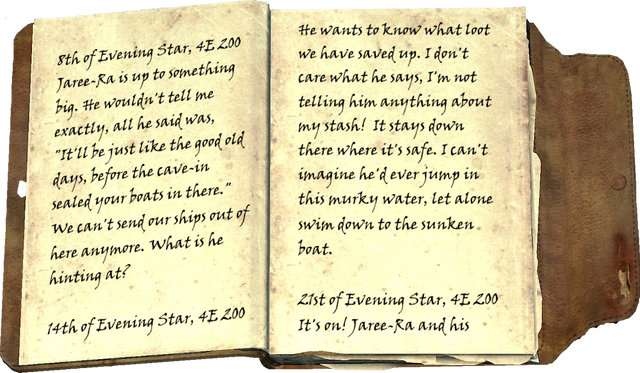 8th of Evening Star, 4E 200
Jaree-Ra is up to something
big. He wouldn't tell me
exactly, all he said was,
"It'll be just like the good old
days, before the cave-in
sealed your boats in there."
We can't send our ships out of
here anymore. What is he
hinting at?
14th of Evening Star, 4E 200
He wants to know what loot
we have saved up. I don't
care what he says, I'm not
telling him anything about
my stash! It stays down
there where it's safe. I can't
imagine he'd ever jump in
this murky water, let alone
swim down to the sunken
boat.
21st of Evening Star, 4E 200
It's on! Jaree-Ra and his